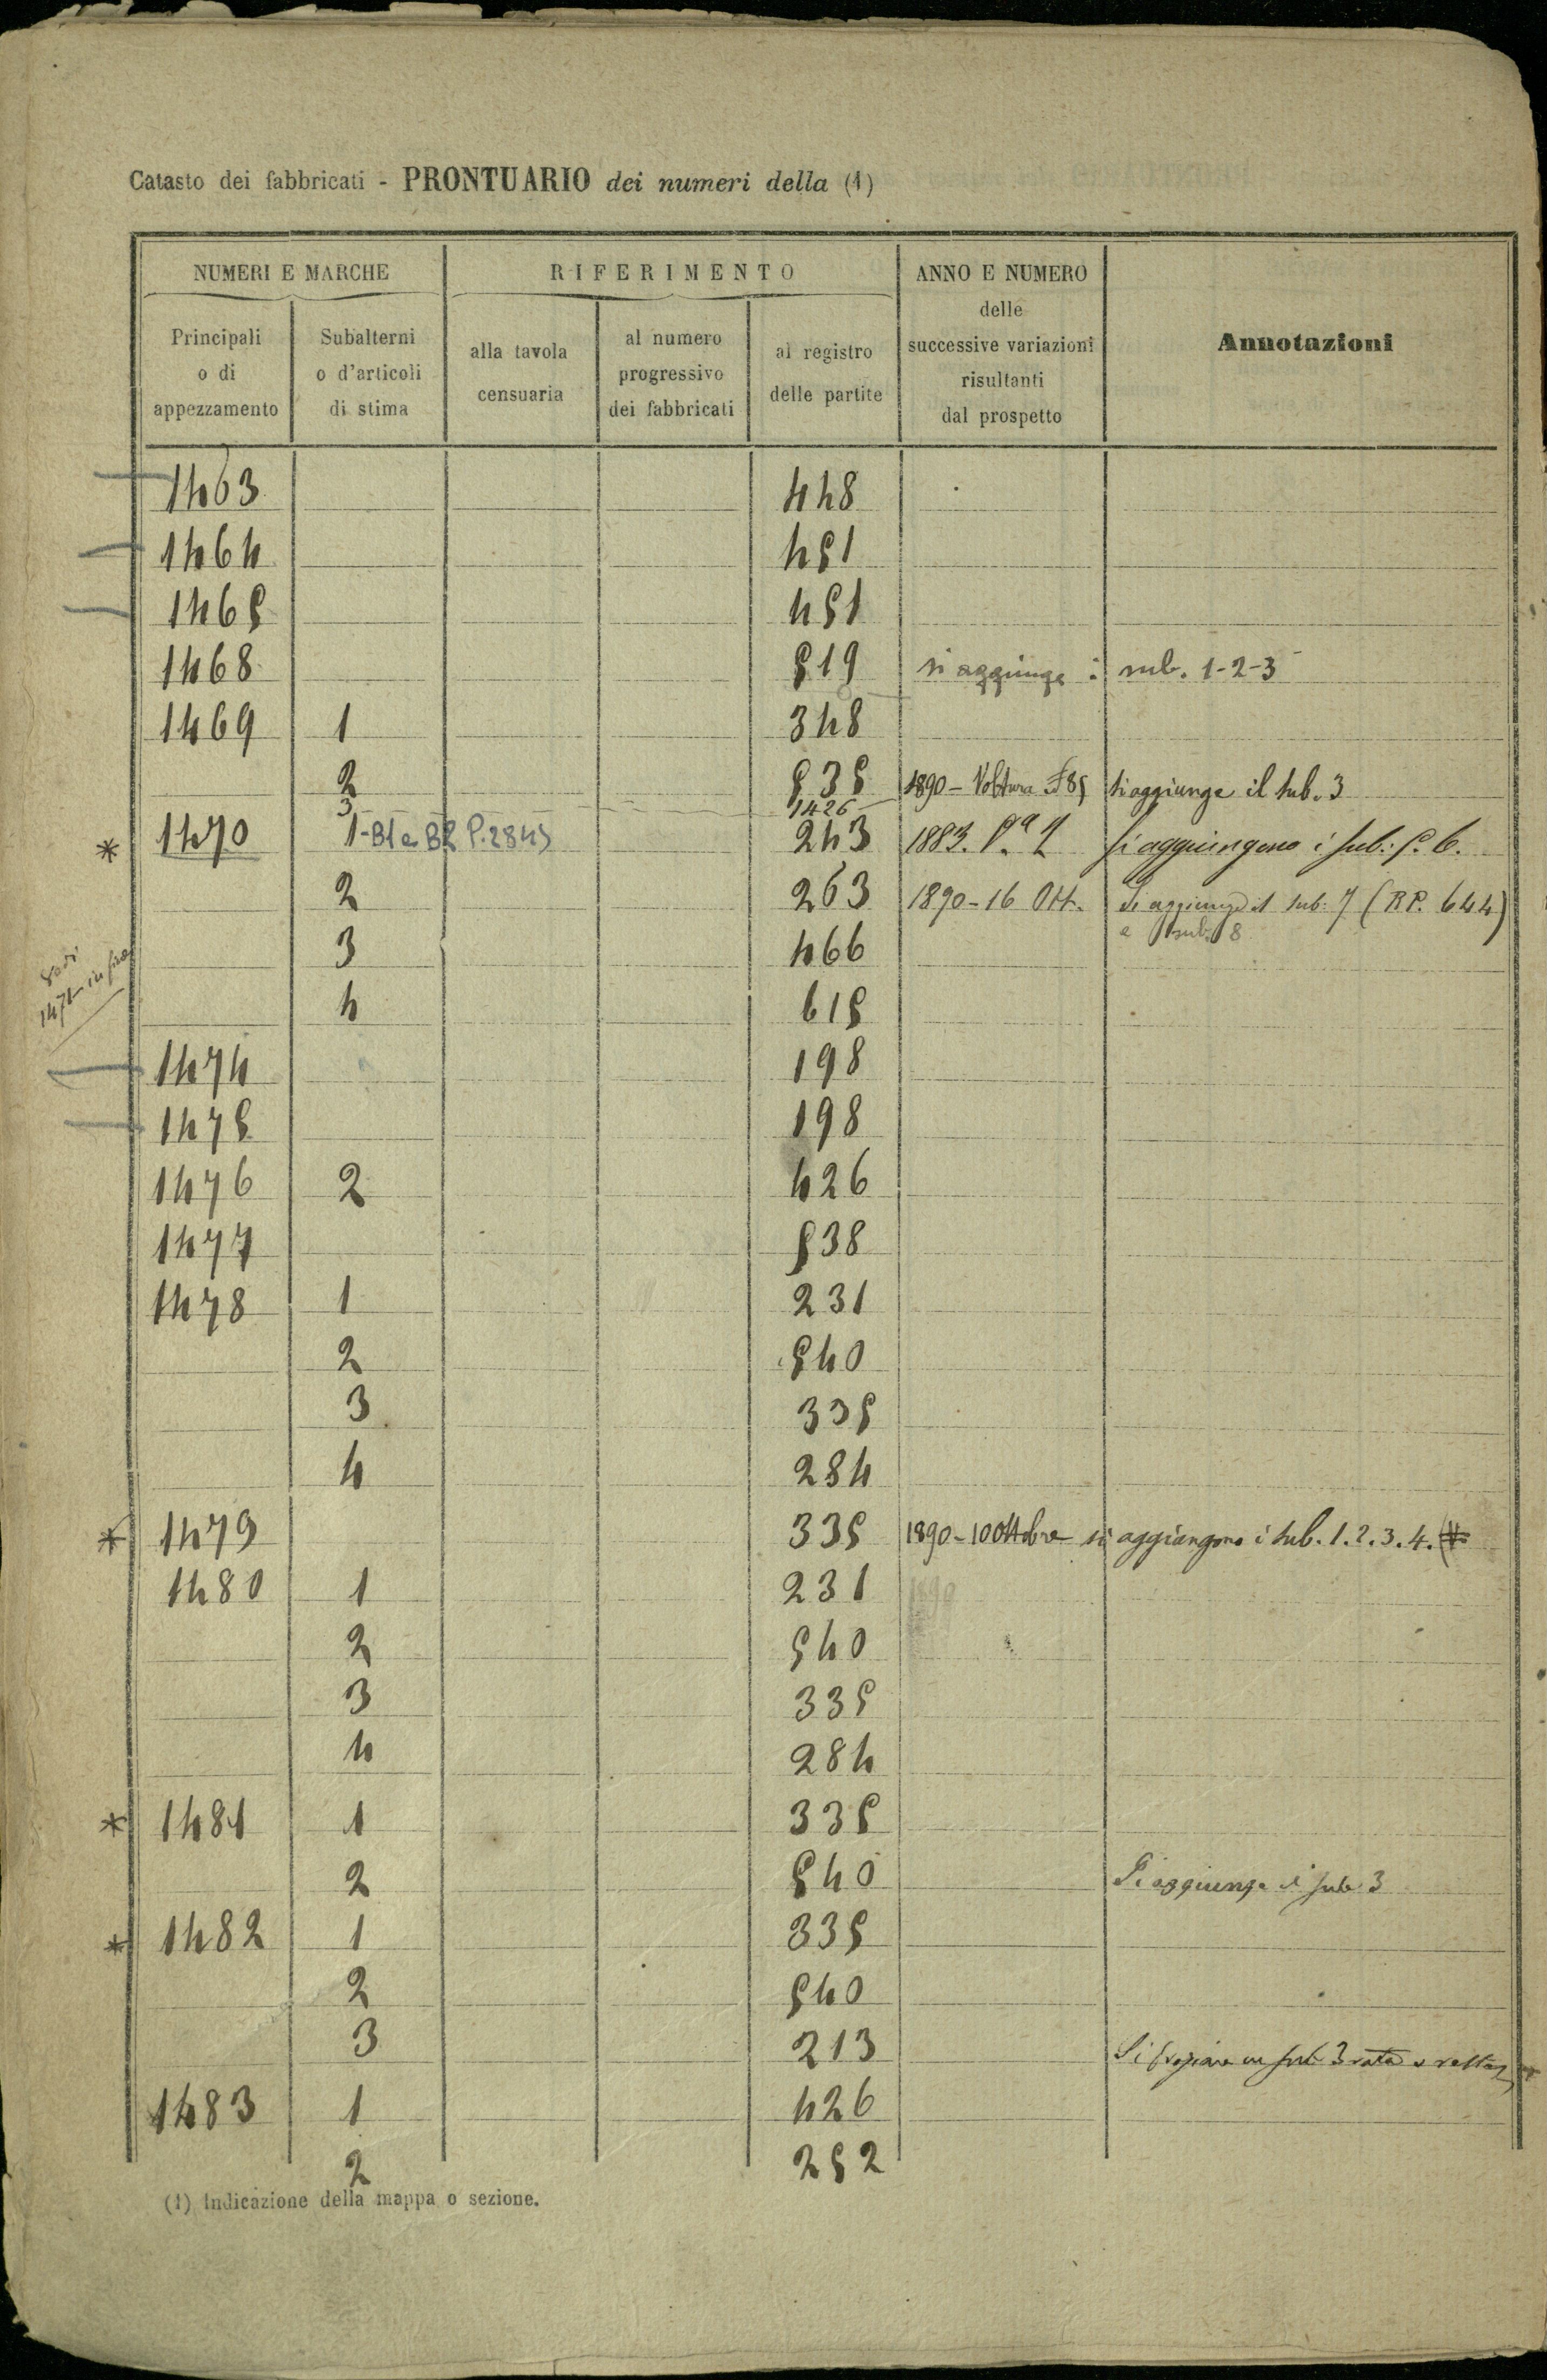 Catasto dei fabbricati - PRONTUARIO dei numeri della (1)
NUMERI E MARCHE
RIFERIMENTO
ANNO E NUMERO
delle
successive variazioni
risultanti
dal prospetto
Annotazioni
Principali
o di
appezzamento
Subalterni
o d'articoli
di stima
alla tavola
censuaria
al numero
progressivo
dei fabbricati
al registro
delle partite
1463 448
1464 451
1465 451
1468 519 si aggiunge : sub. 1-2-3
1469 1 348
2 535 1890 - Voltura 85 si aggiunge il sub. 3
3 1426
* 1470 1-B1 e B2 P. 2845 243 1883. P.a 2 si aggiungono i sub: 5. 6.
2 263 1890-16 Ott. Si aggiunge il sub: 7 (RP. 644)
e sub. 8
3 466
1471 in fine
4 615
1474 198
1475 198
1476 2 426
1477 538
1478 1 231
2 540
3 335
4 284
* 1479 335 1890-10 Ottobre si aggiungono i sub. 1.2.3.4.
1480 1 231 1890
2 540
3 335
4 284
* 1481 1 335
2 540 Si aggiunge il sub 3
* 1482 1 335
2 540
3 213 Si sub 3
1483 1 426
2 252
(1) Indicazione della mappa o sezione.